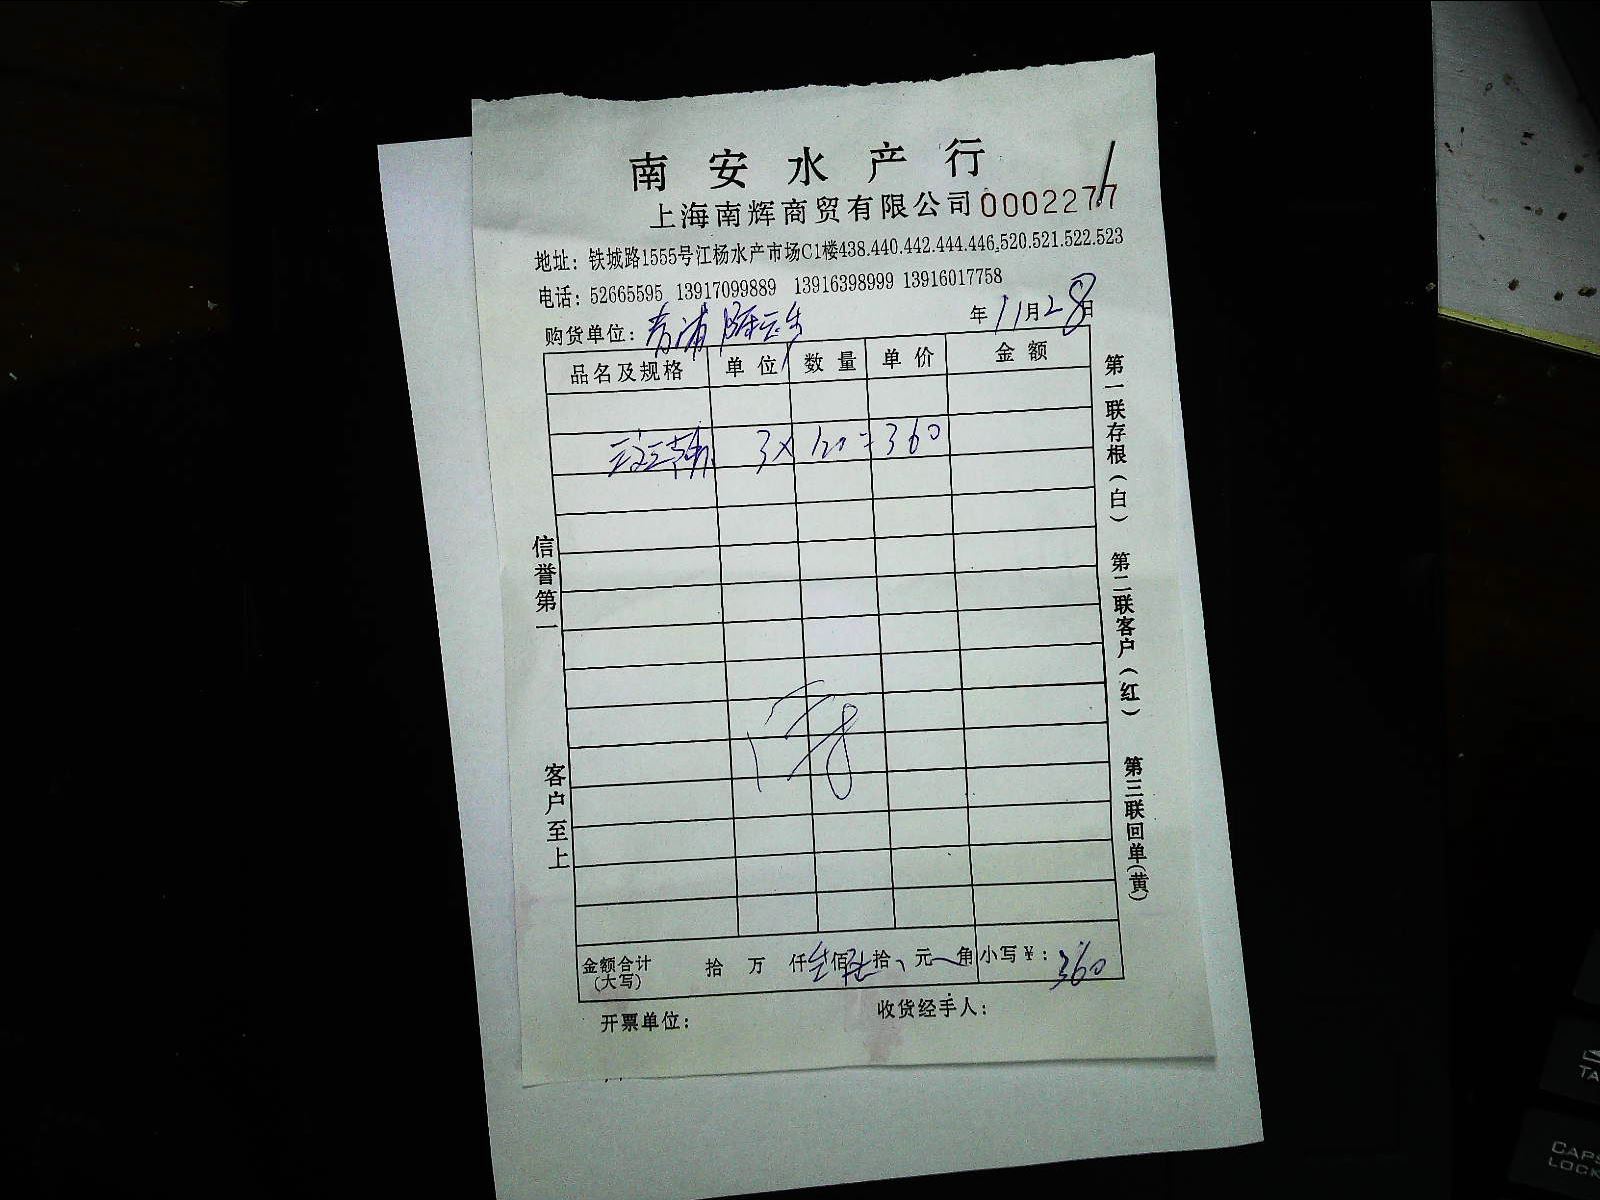 南安水产行
上海南辉商贸有限公司 0002277
地址：铁城路1555号江杨水产市场C1楼438.440.442.444.446.520.521.522.523
电话：52665595 13917099889 13916398999 13916017758
购货单位：青浦 年11月28日
品名及规格 单位 数量 单价 金额
3×120=360
金额合计(大写) 拾 万 仟叁佰陆拾 元 角 小写¥：360
开票单位： 收货经手人：
信誉第一
客户至上
第一联存根(白)
第二联客户(红)
第三联回单(黄)
CAPS
LOCK